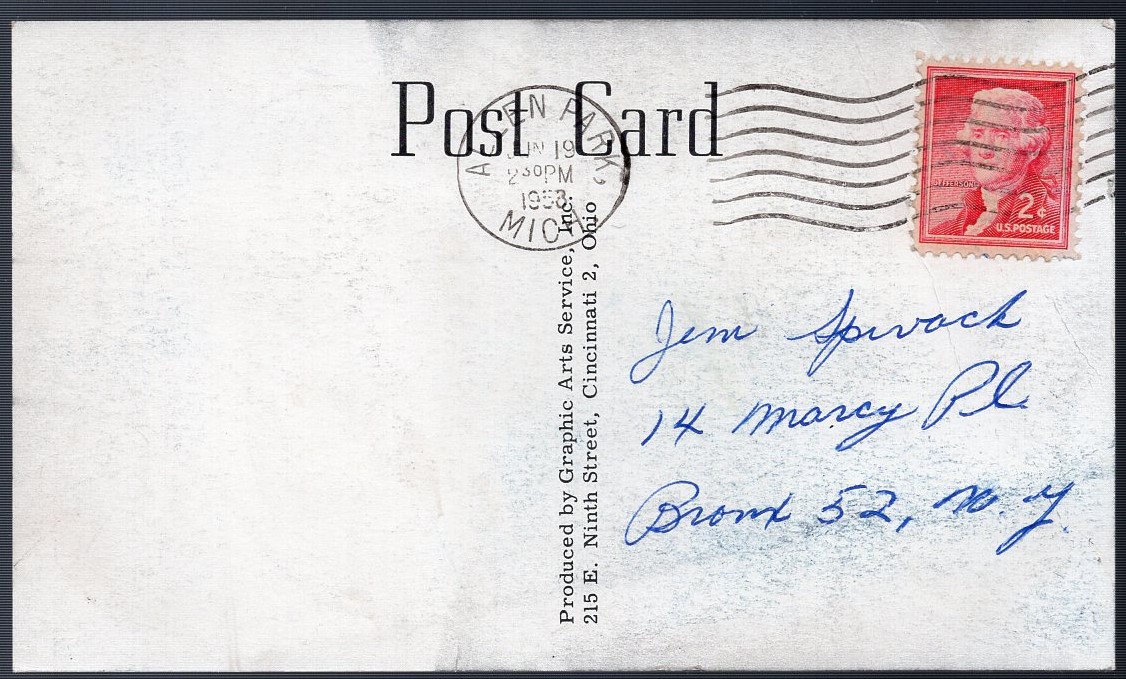 Post Card
ALLEN PARK,
JUN 19
2 30 PM
1958
MICH.
JEFFERSON
2¢
U.S. POSTAGE
Produced by Graphic Arts Service, Inc.
215 E. Ninth Street, Cincinnati 2, Ohio
Jem Spivack
14 Marcy Pl.
Bronx 52, N.Y.